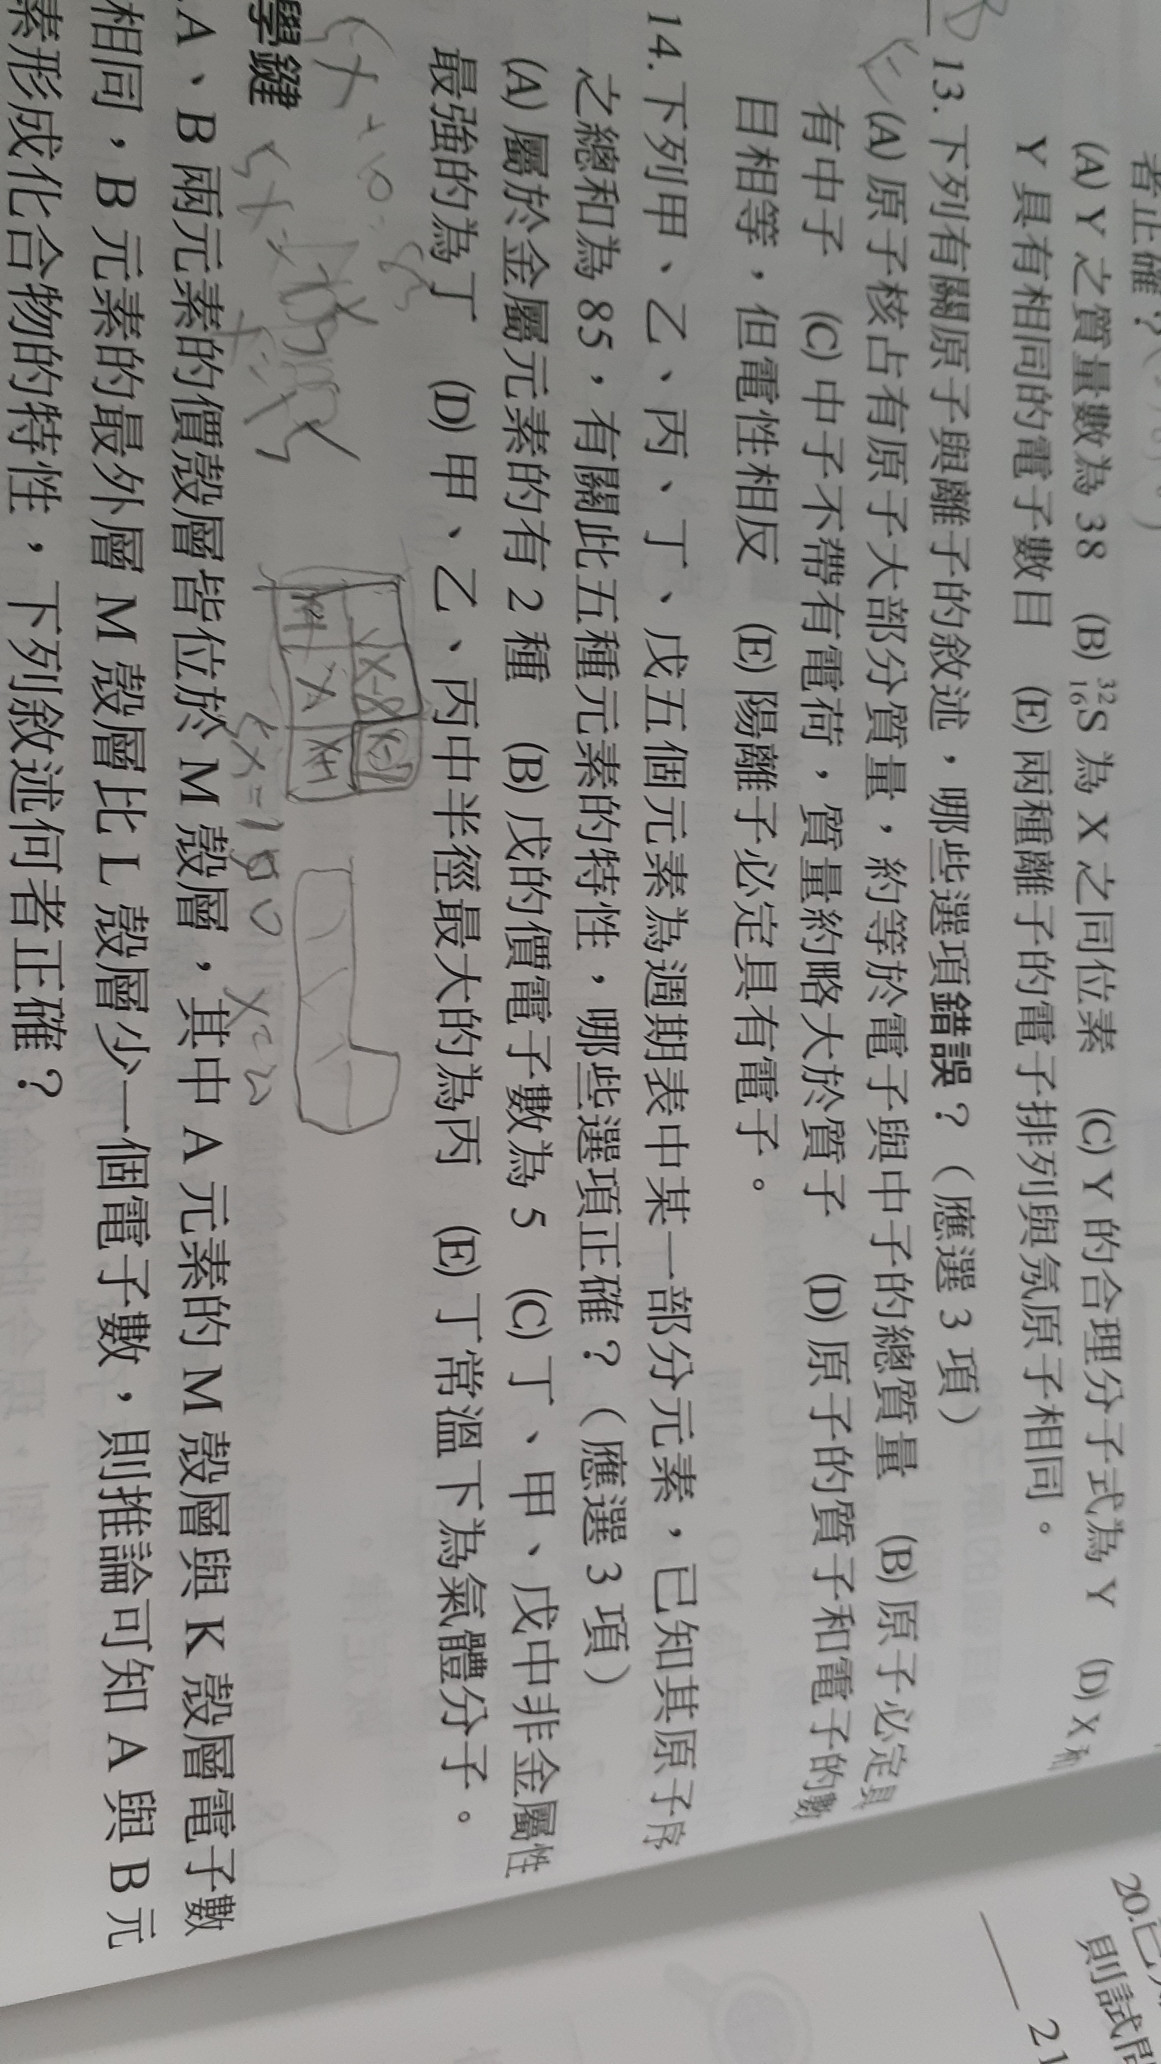 者正確?
(A) Y 之質量數為 38 (B) ³²₁₆S 為 X 之同位素 (C) Y 的合理分子式為 Y (D) X 和
Y 具有相同的電子數目 (E) 兩種離子的電子排列與氖原子相同。
13. 下列有關原子與離子的敘述,哪些選項錯誤?(應選 3 項)
(A) 原子核占有原子大部分質量,約等於電子與中子的總質量 (B) 原子必定具
有中子 (C) 中子不帶有電荷,質量約略大於質子 (D) 原子的質子和電子的數
目相等,但電性相反 (E) 陽離子必定具有電子。
14. 下列甲、乙、丙、丁、戊五個元素為週期表中某一部分元素,已知其原子序
之總和為 85,有關此五種元素的特性,哪些選項正確?(應選 3 項)
(A) 屬於金屬元素的有 2 種 (B) 戊的價電子數為 5 (C) 丁、甲、戊中非金屬性
最強的為丁 (D) 甲、乙、丙中半徑最大的為丙 (E) 丁常溫下為氣體分子。
X-8
X
X+1
學鍵
A、B 兩元素的價殼層皆位於 M 殼層,其中 A 元素的 M 殼層與 K 殼層電子數
相同,B 元素的最外層 M 殼層比 L 殼層少一個電子數,則推論可知 A 與 B 元
素形成化合物的特性,下列敘述何者正確?
20. 已
則試問
21